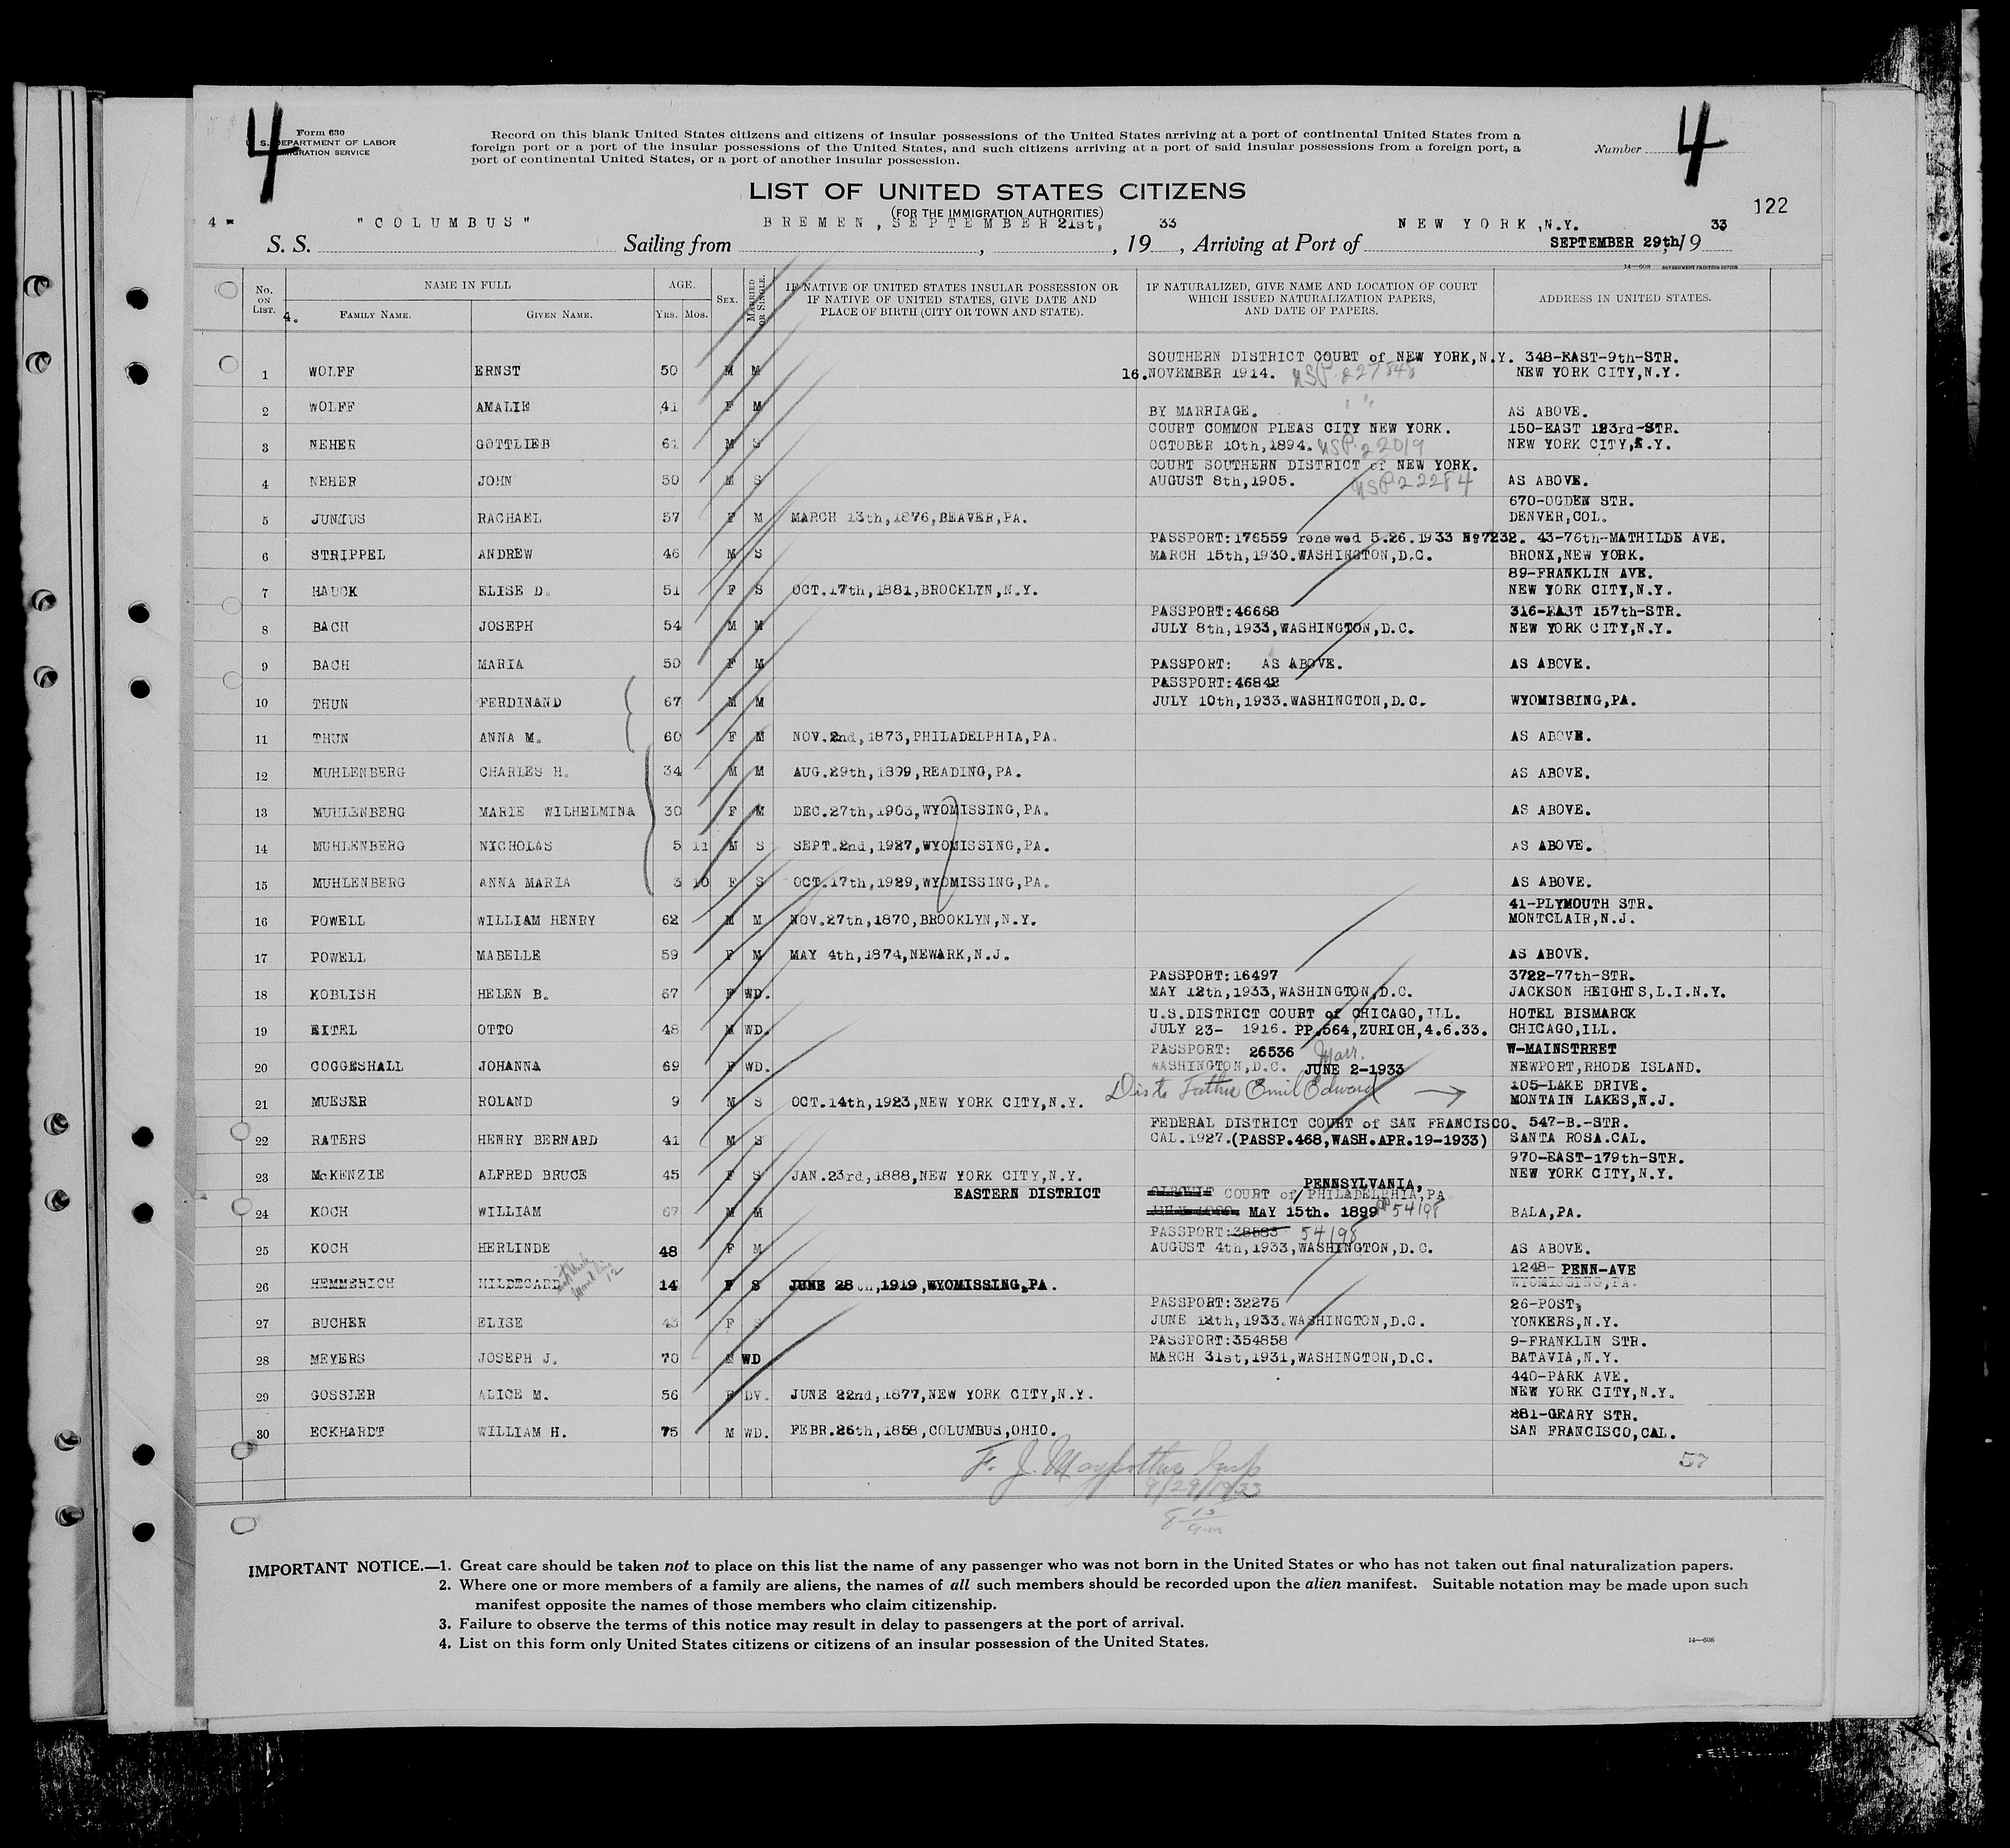 4
4
Form 630
U. S. DEPARTMENT OF LABOR
IMMIGRATION SERVICE
Record on this blank United States citizens and citizens of insular possessions of the United States arriving at a port of continental United States from a
foreign port or a port of the insular possessions of the United States, and such citizens arriving at a port of said insular possessions from a foreign port, a
port of continental United States, or a port of another insular possession.
Number
LIST OF UNITED STATES CITIZENS
(FOR THE IMMIGRATION AUTHORITIES)
122
4 -
S. S. "COLUMBUS" Sailing from BREMEN, SEPTEMBER 21st, 1933, Arriving at Port of NEW YORK, N.Y. SEPTEMBER 29th, 1933
14—608 GOVERNMENT PRINTING OFFICE
No. ON LIST. NAME IN FULL AGE. SEX. MARRIED OR SINGLE. IF NATIVE OF UNITED STATES INSULAR POSSESSION OR IF NATIVE OF UNITED STATES, GIVE DATE AND PLACE OF BIRTH (CITY OR TOWN AND STATE). IF NATURALIZED, GIVE NAME AND LOCATION OF COURT WHICH ISSUED NATURALIZATION PAPERS, AND DATE OF PAPERS. ADDRESS IN UNITED STATES.
4. FAMILY NAME. GIVEN NAME. YRS. MOS.
SOUTHERN DISTRICT COURT of NEW YORK,N.Y. 348-EAST-9th-STR.
1 WOLFF ERNST 50 M M 16.NOVEMBER 1914. USP. 227848 NEW YORK CITY,N.Y.
2 WOLFF AMALIE 41 F M BY MARRIAGE. " " AS ABOVE.
COURT COMMON PLEAS CITY NEW YORK. 150-EAST 123rd-STR.
3 NEHER GOTTLIEB 61 M S OCTOBER 10th,1894. USP. 22019 NEW YORK CITY,N.Y.
COURT SOUTHERN DISTRICT of NEW YORK.
4 NEHER JOHN 50 M S AUGUST 8th,1905. USP 22284 AS ABOVE.
670-OGDEN STR.
5 JUNIUS RACHAEL 57 F M MARCH 13th,1876,BEAVER,PA. DENVER,COL.
PASSPORT:176559 renewed 5.26.1933 №7232. 43-76th-MATHILDE AVE.
6 STRIPPEL ANDREW 46 M S MARCH 15th,1930.WASHINGTON,D.C. BRONX,NEW YORK.
89-FRANKLIN AVE.
7 HAUCK ELISE D. 51 F S OCT.17th,1881,BROOKLYN,N.Y. NEW YORK CITY,N.Y.
PASSPORT:46668 316-EAST 157th-STR.
8 BACH JOSEPH 54 M M JULY 8th,1933,WASHINGTON,D.C. NEW YORK CITY,N.Y.
9 BACH MARIA 50 F M PASSPORT: AS ABOVE. AS ABOVE.
PASSPORT:46842
10 THUN FERDINAND 67 M M JULY 10th,1933.WASHINGTON,D.C. WYOMISSING,PA.
11 THUN ANNA M. 60 F M NOV.2nd,1873,PHILADELPHIA,PA. AS ABOVE.
12 MUHLENBERG CHARLES H. 34 M M AUG.29th,1899,READING,PA. AS ABOVE.
13 MUHLENBERG MARIE WILHELMINA 30 F M DEC.27th,1903,WYOMISSING,PA. AS ABOVE.
14 MUHLENBERG NICHOLAS 5 11 M S SEPT.2nd,1927,WYOMISSING,PA. AS ABOVE.
15 MUHLENBERG ANNA MARIA 3 10 F S OCT.17th,1929,WYOMISSING,PA. AS ABOVE.
41-PLYMOUTH STR.
16 POWELL WILLIAM HENRY 62 M M NOV.27th,1870,BROOKLYN,N.Y. MONTCLAIR,N.J.
17 POWELL MABELLE 59 F M MAY 4th,1874,NEWARK,N.J. AS ABOVE.
PASSPORT:16497 3722-77th-STR.
18 KOBLISH HELEN B. 67 F WD. MAY 12th,1933,WASHINGTON,D.C. JACKSON HEIGHTS,L.I.N.Y.
U.S.DISTRICT COURT of CHICAGO,ILL. HOTEL BISMARCK
19 EITEL OTTO 48 M WD. JULY 23- 1916. PP.564,ZURICH,4.6.33. CHICAGO,ILL.
PASSPORT: 26536 Marr. W-MAINSTREET
20 COGGESHALL JOHANNA 69 F WD. WASHINGTON,D.C. JUNE 2-1933 NEWPORT,RHODE ISLAND.
Dis to Father Emil Edward → 105-LAKE DRIVE.
21 MUESER ROLAND 9 M S OCT.14th,1923,NEW YORK CITY,N.Y. MONTAIN LAKES,N.J.
FEDERAL DISTRICT COURT of SAN FRANCISCO. 547-B.-STR.
22 RATERS HENRY BERNARD 41 M S CAL.1927.(PASSP.468,WASH.APR.19-1933) SANTA ROSA.CAL.
970-EAST-179th-STR.
23 McKENZIE ALFRED BRUCE 45 F S JAN.23rd,1888,NEW YORK CITY,N.Y. NEW YORK CITY,N.Y.
EASTERN DISTRICT CIRCUIT COURT of PENNSYLVANIA, PHILADELPHIA,PA
24 KOCH WILLIAM 67 M M MAY 15th. 1899 PP 54198 BALA,PA.
PASSPORT:38583 54198
25 KOCH HERLINDE 48 F M AUGUST 4th,1933,WASHINGTON,D.C. AS ABOVE.
1248- PENN-AVE
26 HEMMERICH HILDEGARD 14 F S JUNE 28th,1919,WYOMISSING,PA. WYOMISSING,PA.
PASSPORT:32275 26-POST,
27 BUCHER ELISE 43 F S JUNE 12th,1933.WASHINGTON,D.C. YONKERS,N.Y.
PASSPORT:354858 9-FRANKLIN STR.
28 MEYERS JOSEPH J. 70 M WD MARCH 31st,1931,WASHINGTON,D.C. BATAVIA,N.Y.
440-PARK AVE.
29 GOSSLER ALICE M. 56 F DV. JUNE 22nd,1877,NEW YORK CITY,N.Y. NEW YORK CITY,N.Y.
281-GEARY STR.
30 ECKHARDT WILLIAM H. 75 M WD. FEBR.26th,1858,COLUMBUS,OHIO. SAN FRANCISCO,CAL.
F. J. Insp
9/29/1933
8 15 am
57
IMPORTANT NOTICE.—1. Great care should be taken not to place on this list the name of any passenger who was not born in the United States or who has not taken out final naturalization papers.
2. Where one or more members of a family are aliens, the names of all such members should be recorded upon the alien manifest. Suitable notation may be made upon such
manifest opposite the names of those members who claim citizenship.
3. Failure to observe the terms of this notice may result in delay to passengers at the port of arrival.
4. List on this form only United States citizens or citizens of an insular possession of the United States.
14—608